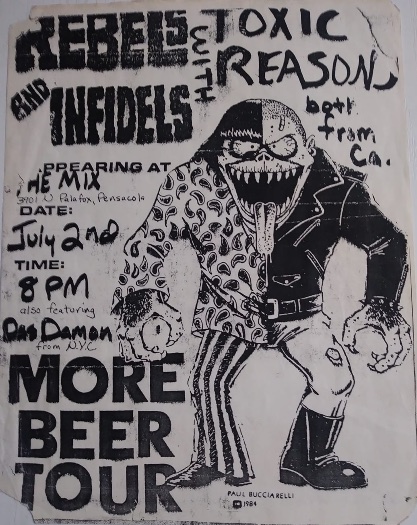 REBELS
AND
INFIDELS
WITH
TOXIC
REASONS
both
from
Ca.
PPEARING AT
THE MIX
3701 N Palafox, Pensacola
DATE:
July 2nd
TIME:
8 PM
also featuring
Das Damon
from N.Y.C
MORE
BEER
TOUR
PAUL BUCCIARELLI
1984